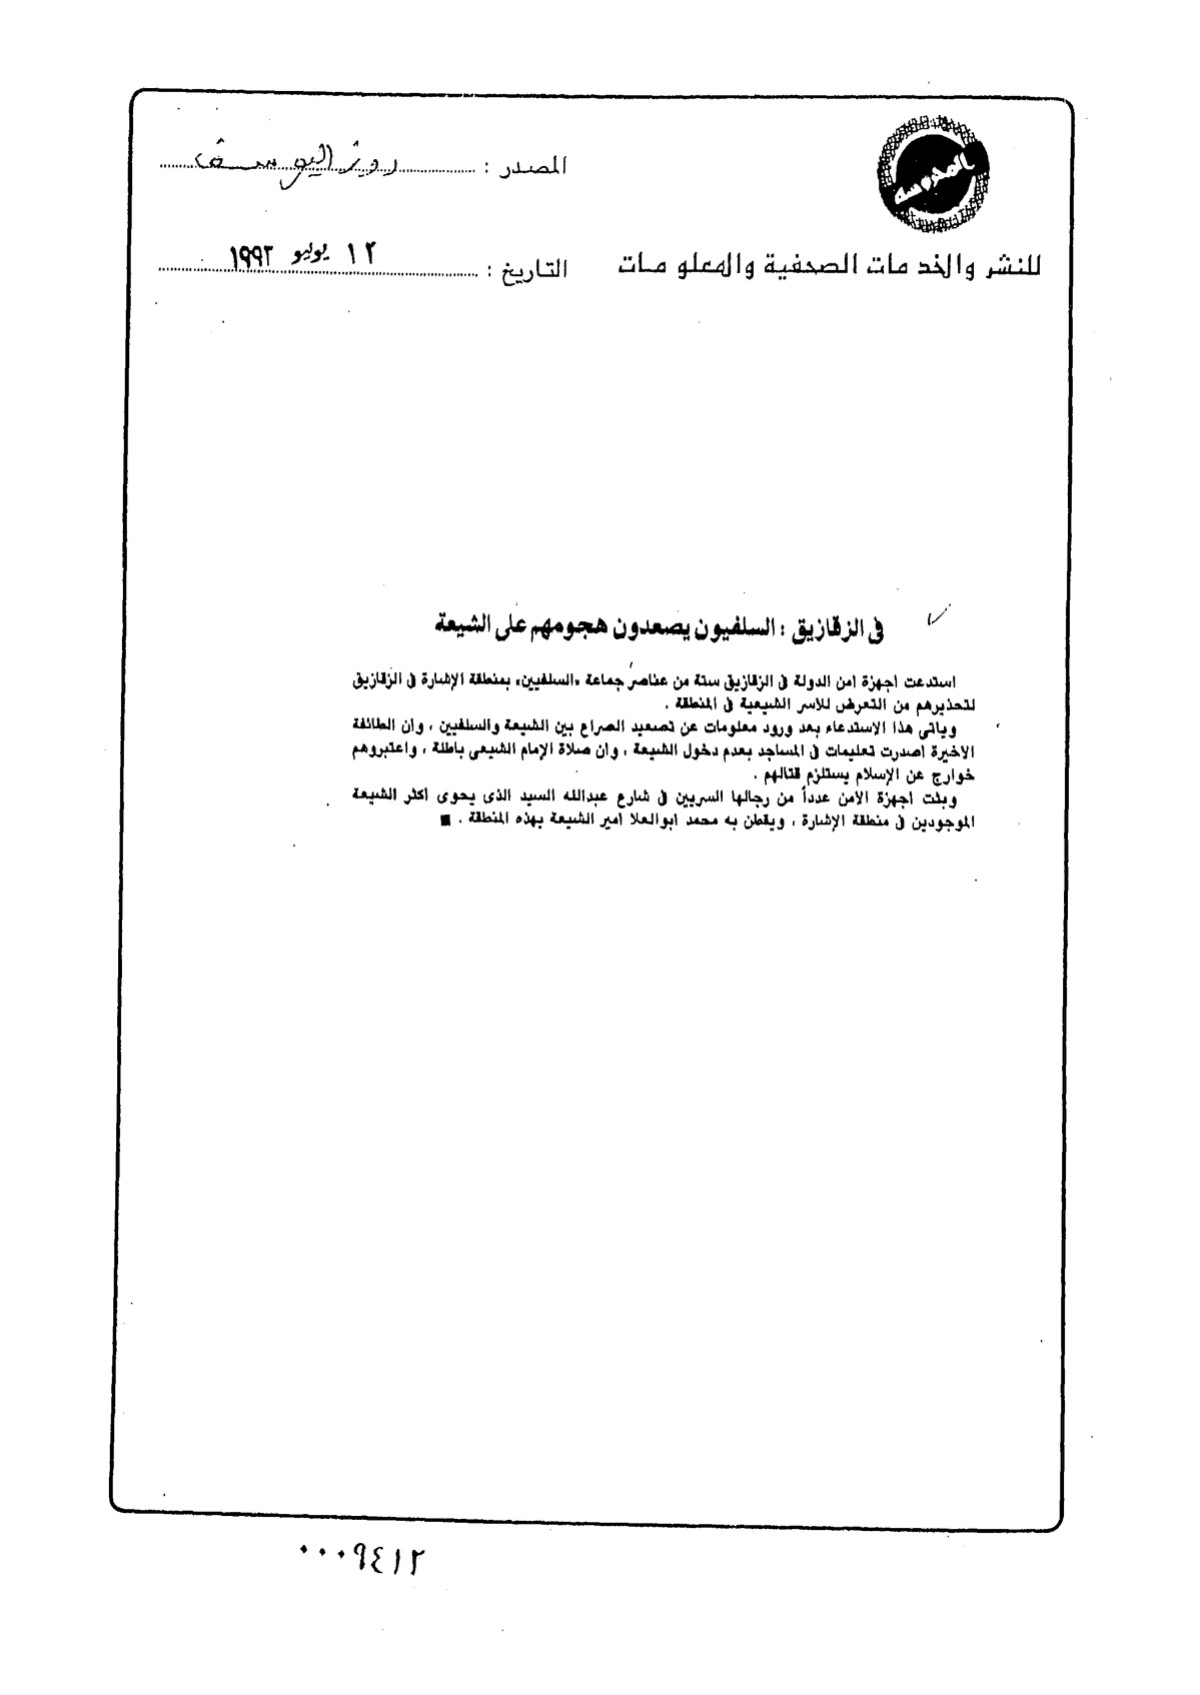 المحروسة
للنشر والخدمات الصحفية والمعلومات
المصدر : روز اليوسف
التاريخ : ١٢ يوليو ١٩٩٣
فى الزقازيق : السلفيون يصعدون هجومهم على الشيعة
استدعت اجهزة امن الدولة فى الزقازيق ستة من عناصر جماعة «السلفيين» بمنطقة الإشارة فى الزقازيق
لتحذيرهم من التعرض للاسر الشيعية فى المنطقة .
وياتى هذا الاستدعاء بعد ورود معلومات عن تصعيد الصراع بين الشيعة والسلفيين ، وان الطائفة
الاخيرة اصدرت تعليمات فى المساجد بعدم دخول الشيعة ، وان صلاة الإمام الشيعى باطلة ، واعتبروهم
خوارج عن الإسلام يستلزم قتالهم .
وبثت اجهزة الامن عدداً من رجالها السريين فى شارع عبدالله السيد الذى يحوى اكثر الشيعة
الموجودين فى منطقة الإشارة ، ويقطن به محمد ابوالعلا امير الشيعة بهذه المنطقة .
٠٠٠٩٤١٢